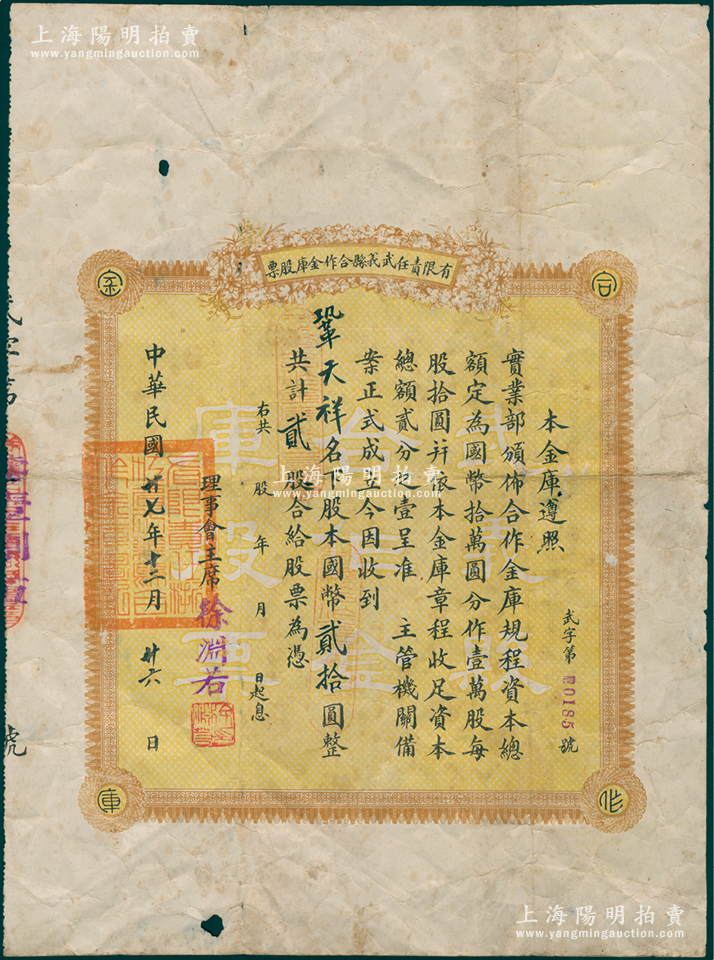 上海陽明拍賣
www.yangmingauction.com
上海陽明拍賣
www.yangmingauction.com
有限責任武義縣合作金庫股票
合
作
金
庫
武字第00185號
本金庫遵照
實業部頒佈合作金庫規程資本總
額定為國幣拾萬圓分作壹萬股每
股拾圓幷依本金庫章程收足資本
總額貳分之壹呈准 主管機關備
案正式成立今因收到
鞏天祥名下股本國幣貳拾圓整
共計貳股合給股票為憑
右共 股 年 月 日起息
理事會主席徐淵若
中華民國廿七年十二月廿六日
號
上海陽明拍賣
www.yangmingauction.com
上海陽明拍賣
www.yangmingauction.com